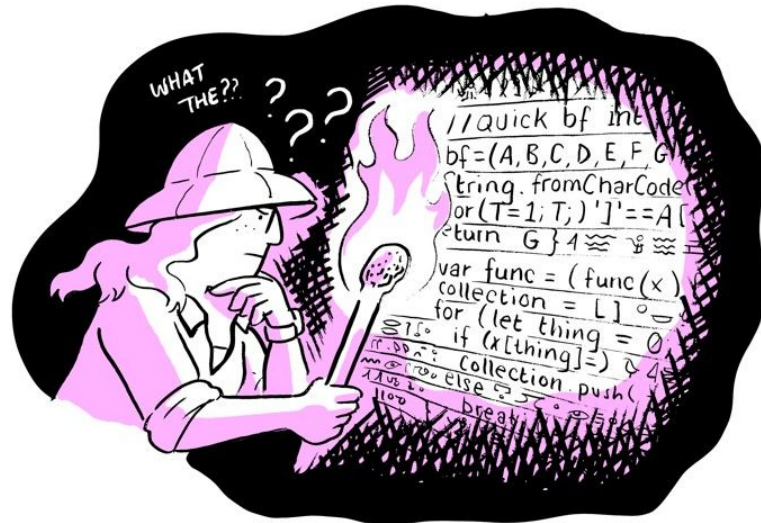 WHAT
THE??
? ? ?
//Quick bf int
bf=(A,B,C,D,E,F,G
String.fromCharCode(
or(T=1;T;)']'==A[
eturn G}
var func = (func(x)
collection = []
for (let thing = 0
if (x[thing]=)
collection.push(
else
break;
1100